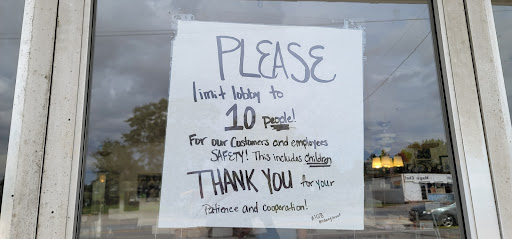 PLEASE
limit lobby to
10 people!
For our Customers and employees
SAFETY! This includes Children
THANK YOU for your
Patience and cooperation!